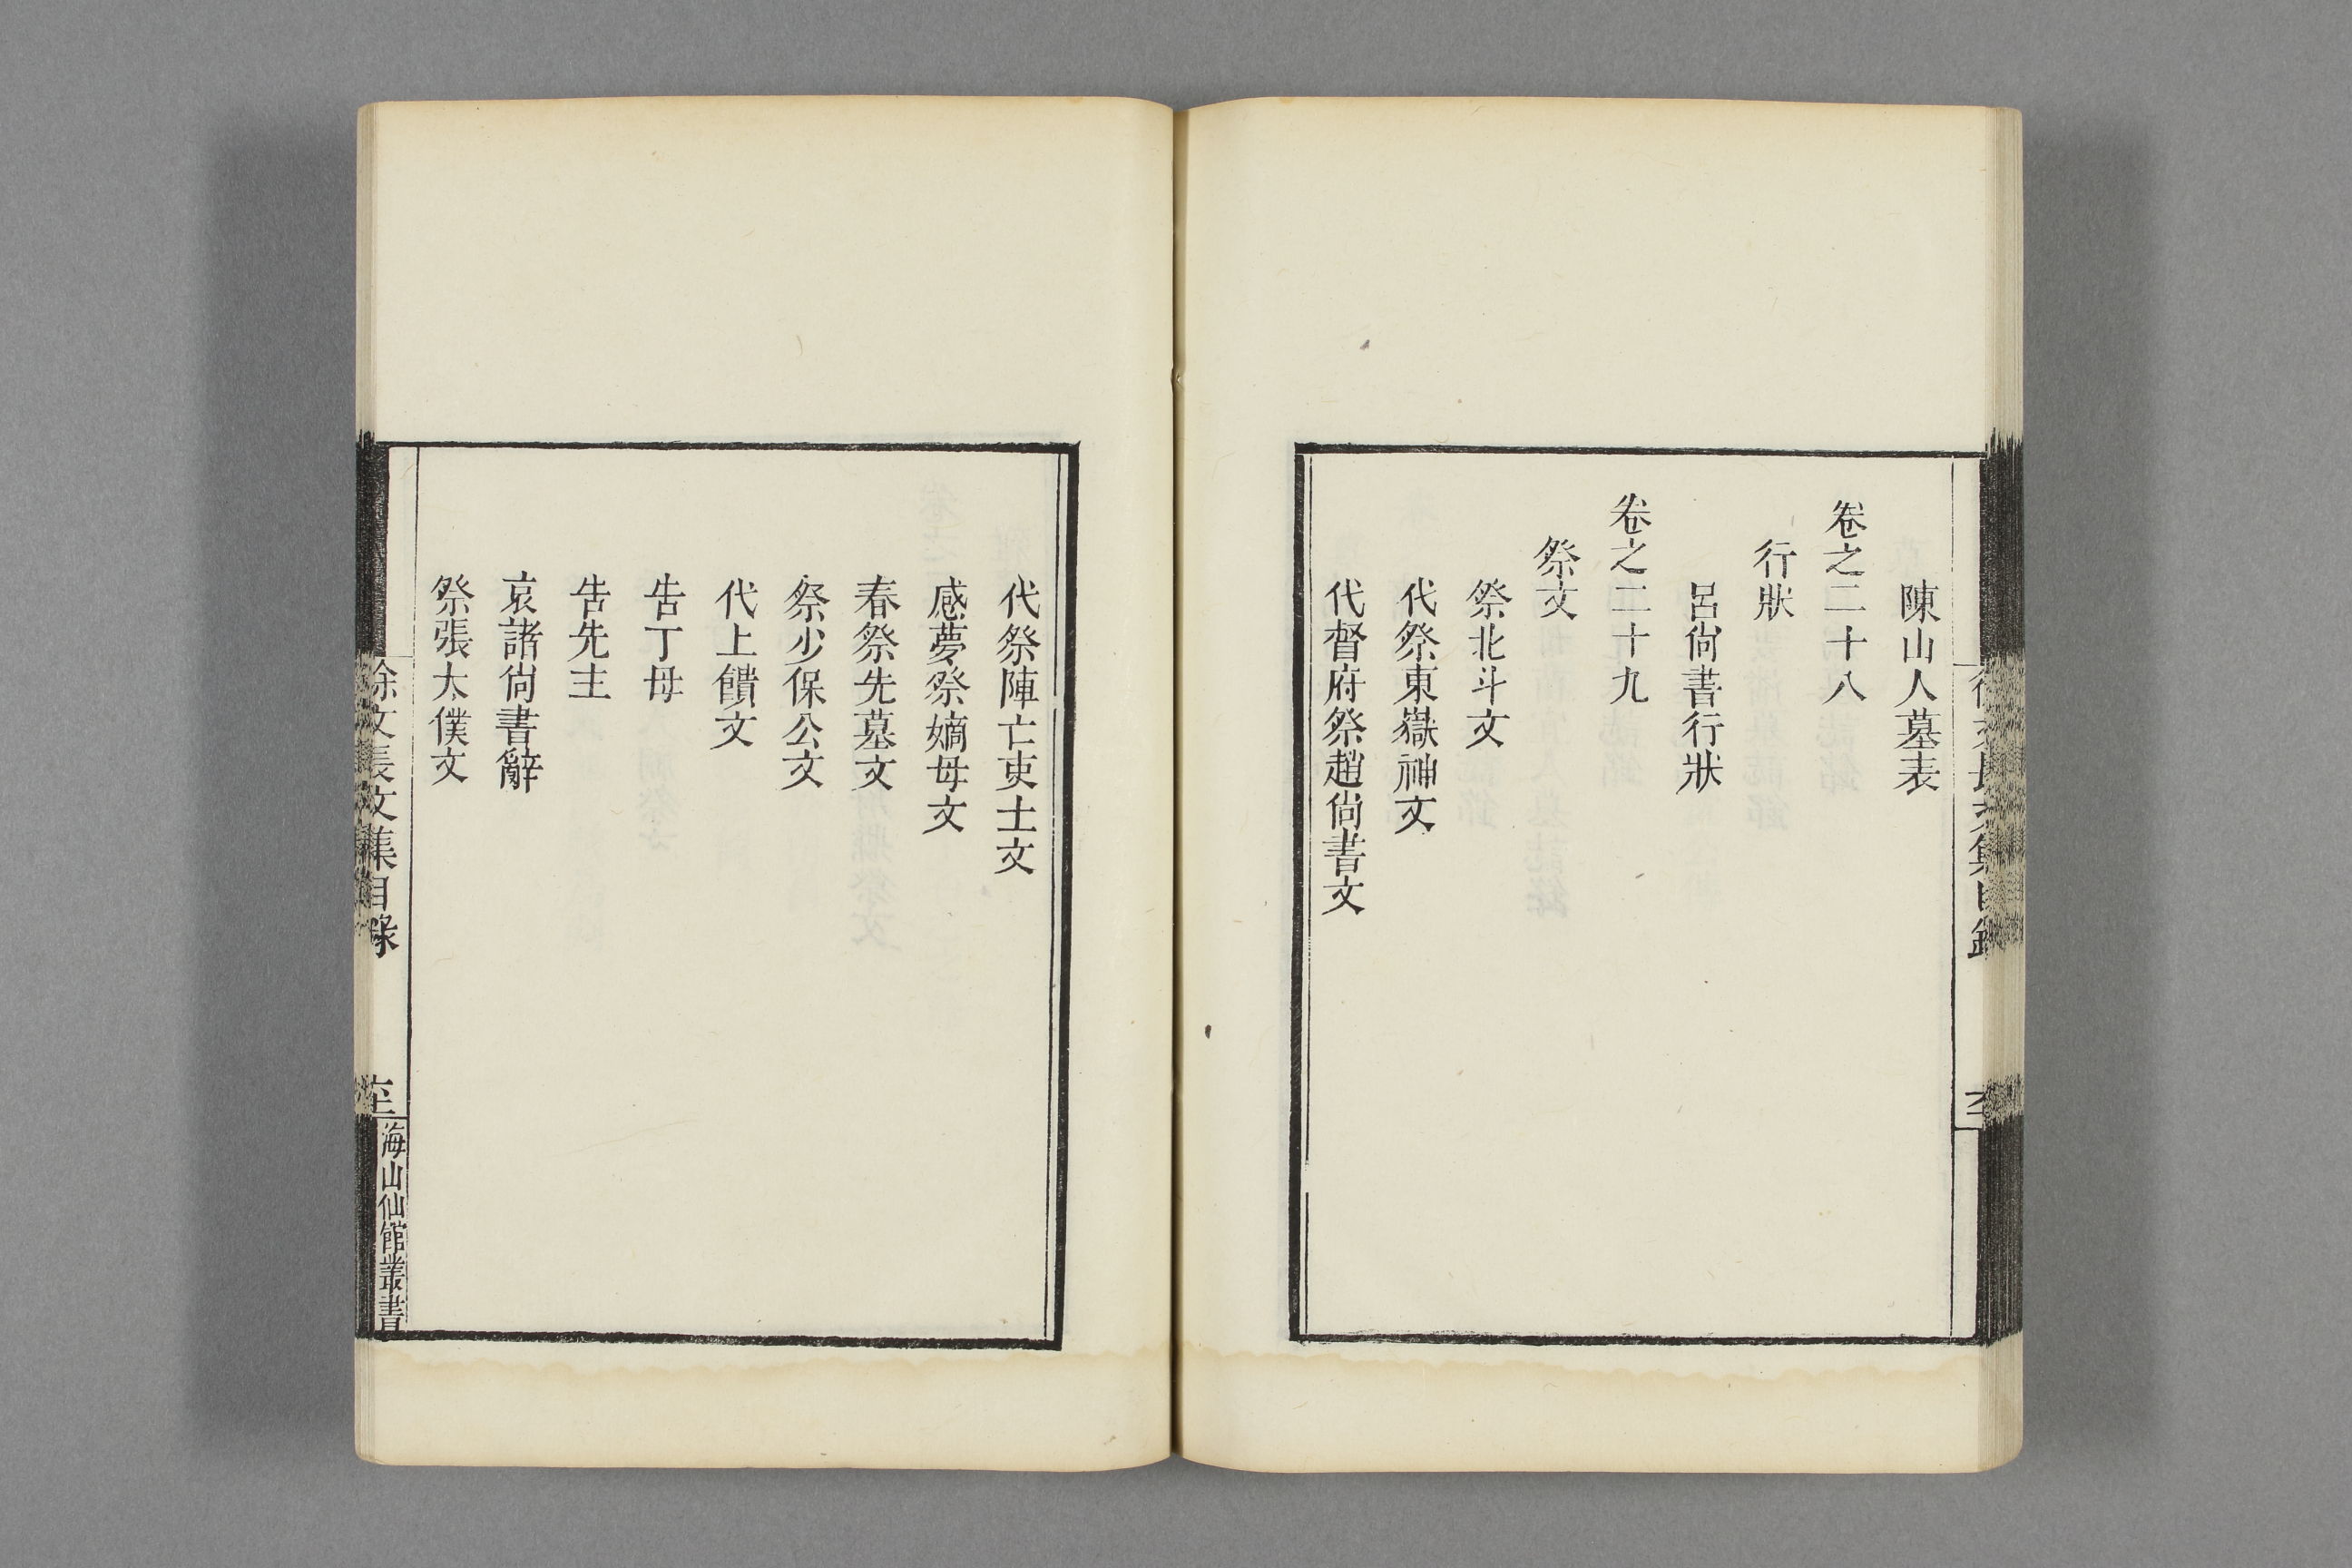 陳山人墓表
卷之二十八
行狀
呂尙書行狀
卷之二十九
祭文
祭北斗文
代祭東嶽神文
代督府祭趙尙書文
代祭陣亡吏士文
感夢祭嫡母文
春祭先墓文
祭少保公文
代上饋文
告丁母
告先主
哀諸尙書辭
祭張太僕文
徐文長文集目錄
海山仙館叢書